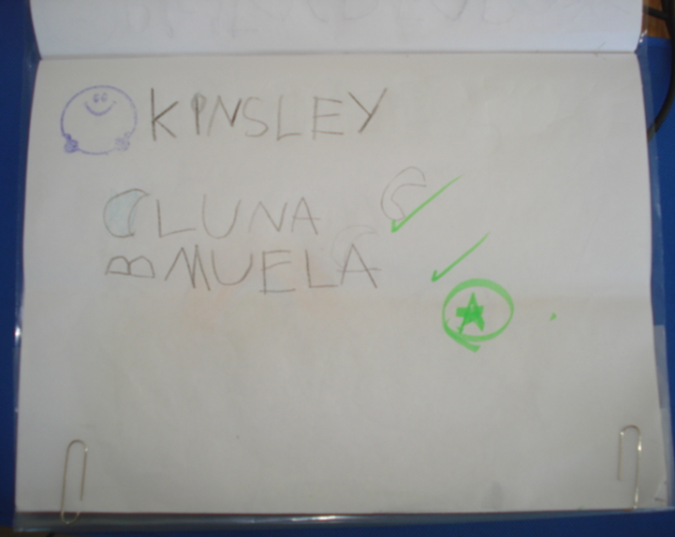 KINSLEY
LUNA
MUELA